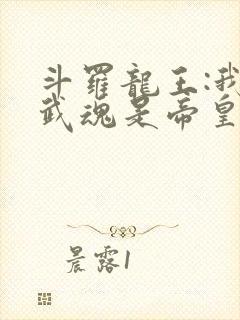 斗羅龍王:我
武魂是帝皇
晨露1